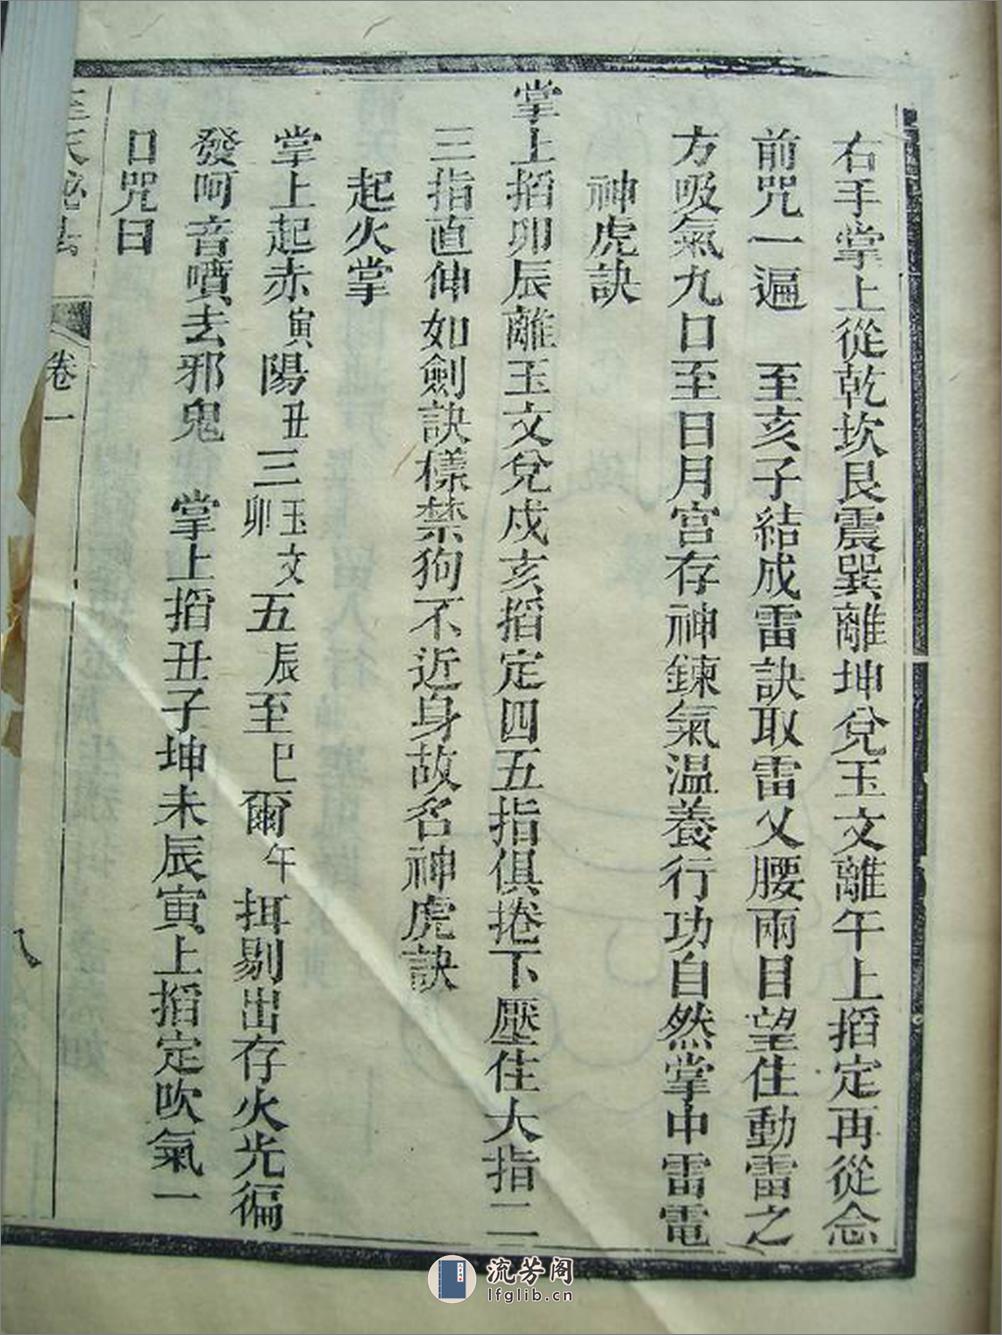 右手掌上從乾坎艮震巽離坤兌玉文離午上搯定再從念
前咒一遍　至亥子結成雷訣取雷父腰兩目望住動雷之
方吸氣九口至日月宮存神鍊氣温養行功自然掌中雷電
神虎訣
掌上搯卯辰離玉文兌戍亥搯定四五指俱捲下壓住大指二
三指直伸如劍訣樣禁狗不近身故名神虎訣
起火掌
掌上起赤寅陽丑三玉文卯五辰至巳爾午挕剔出存火光徧
發呵音噴去邪鬼　掌上搯丑子坤未辰寅上搯定吹氣一
口咒曰
天秘法
卷一
八
流芳阁
lfglib.cn